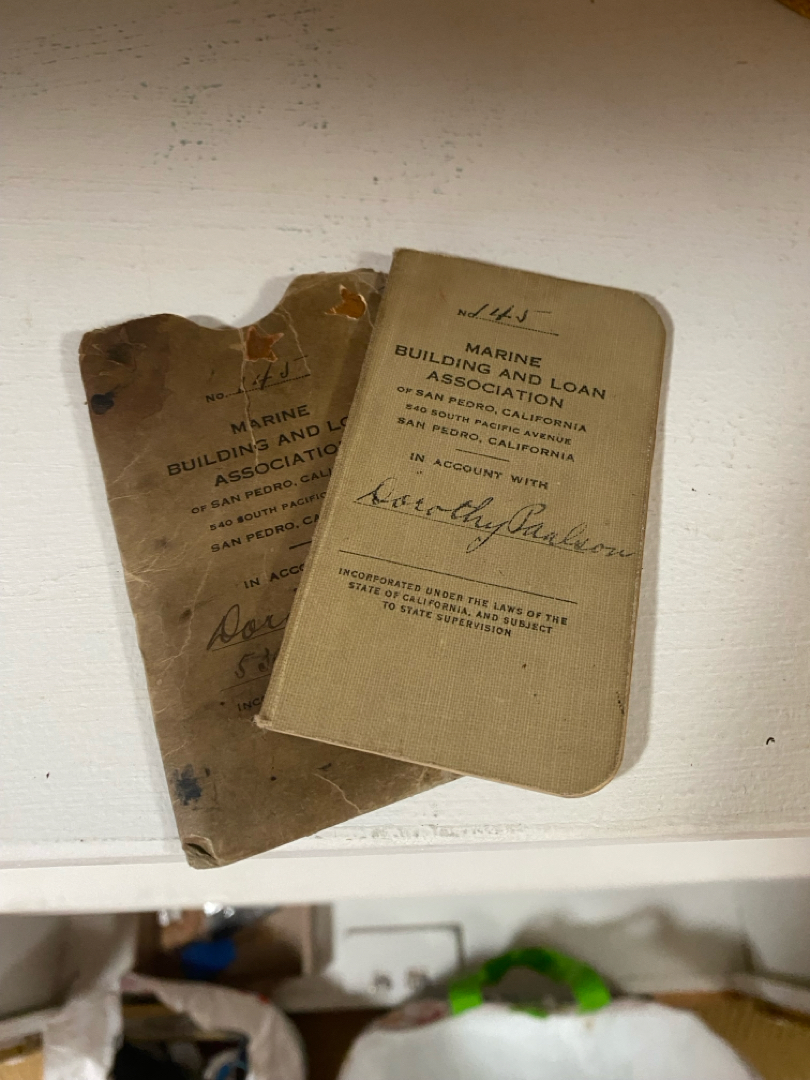 No. 145
MARINE
BUILDING AND LO
ASSOCIATIO
OF SAN PEDRO, CALI
540 SOUTH PACIFIC
SAN PEDRO, CA
IN ACCO
Dor
INC
No. 145
MARINE
BUILDING AND LOAN
ASSOCIATION
OF SAN PEDRO, CALIFORNIA
540 SOUTH PACIFIC AVENUE
SAN PEDRO, CALIFORNIA
IN ACCOUNT WITH
Dorothy Paulson
INCORPORATED UNDER THE LAWS OF THE
STATE OF CALIFORNIA, AND SUBJECT
TO STATE SUPERVISION